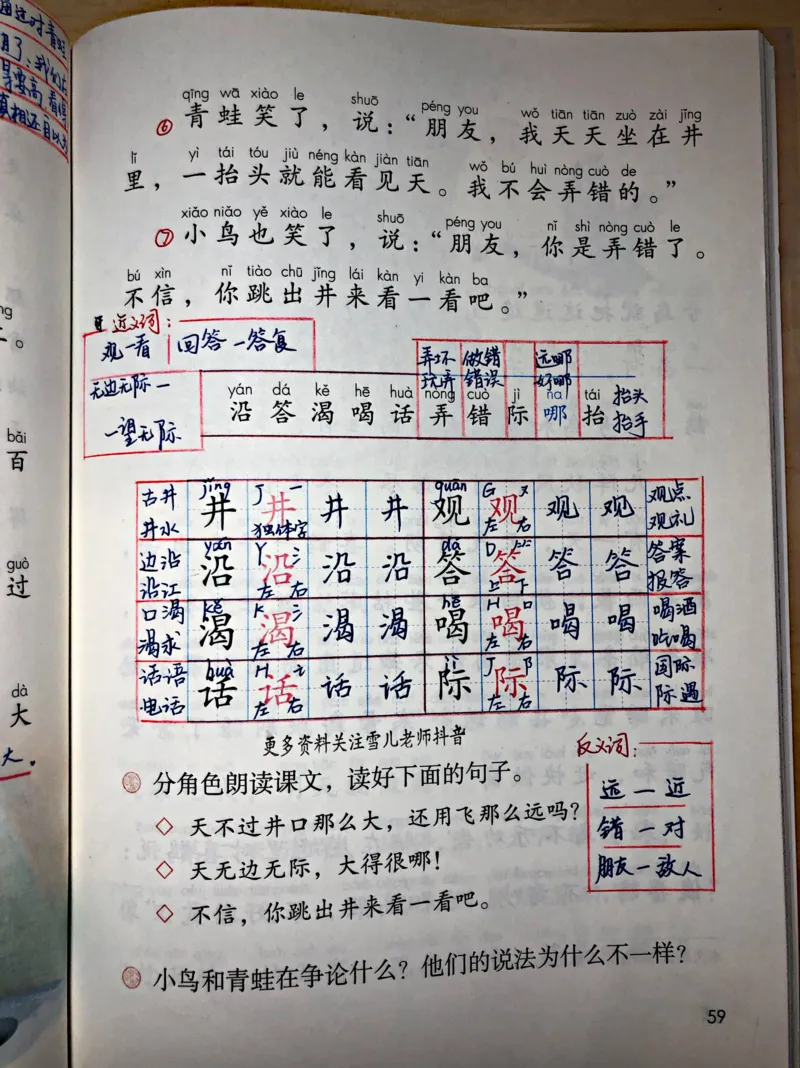 通过对青蛙
qīng wā xiào le shuō péng you wǒ tiān tiān zuò zài jǐng
⑥ 青蛙笑了，说：“朋友，我天天坐在井
lǐ yì tái tóu jiù néng kàn jiàn tiān wǒ bú huì nòng cuò de
里，一抬头就能看见天。我不会弄错的。”
xiǎo niǎo yě xiào le shuō péng you nǐ shì nòng cuò le
⑦ 小鸟也笑了，说：“朋友，你是弄错了。
bú xìn nǐ tiào chū jǐng lái kàn yi kàn ba
不信，你跳出井来看一看吧。”
近义词：
观—看 回答—答复
无边无际—
一望无际
弄坏 做错 远哪
玩弄 错误 好哪
yán dá kě hē huà nòng cuò jì na tái
沿 答 渴 喝 话 弄 错 际 哪 抬
抬头
抬手
古井 jǐng J 一 guān G 又 观点
井水 井 井 井 井 观 观 观 观 观礼
独体字 左 右
边沿 yán Y 氵 dá D ⺮ 答案
沿江 沿 沿 沿 沿 答 答 答 答 报答
左 右 上 下
口渴 kě K 氵 hē H 口 喝酒
渴求 渴 渴 渴 渴 喝 喝 喝 喝 吃喝
左 右 左 右
话语 huà H 讠 jì J 阝 国际
电话 话 话 话 话 际 际 际 际 际遇
左 右 左 右
更多资料关注雪儿老师抖音
反义词：
远—近
错—对
朋友—敌人
分角色朗读课文，读好下面的句子。
◇ 天不过井口那么大，还用飞那么远吗？
◇ 天无边无际，大得很哪！
◇ 不信，你跳出井来看一看吧。
小鸟和青蛙在争论什么？他们的说法为什么不一样？
59
bǎi
百
guò
过
dà
大
大。